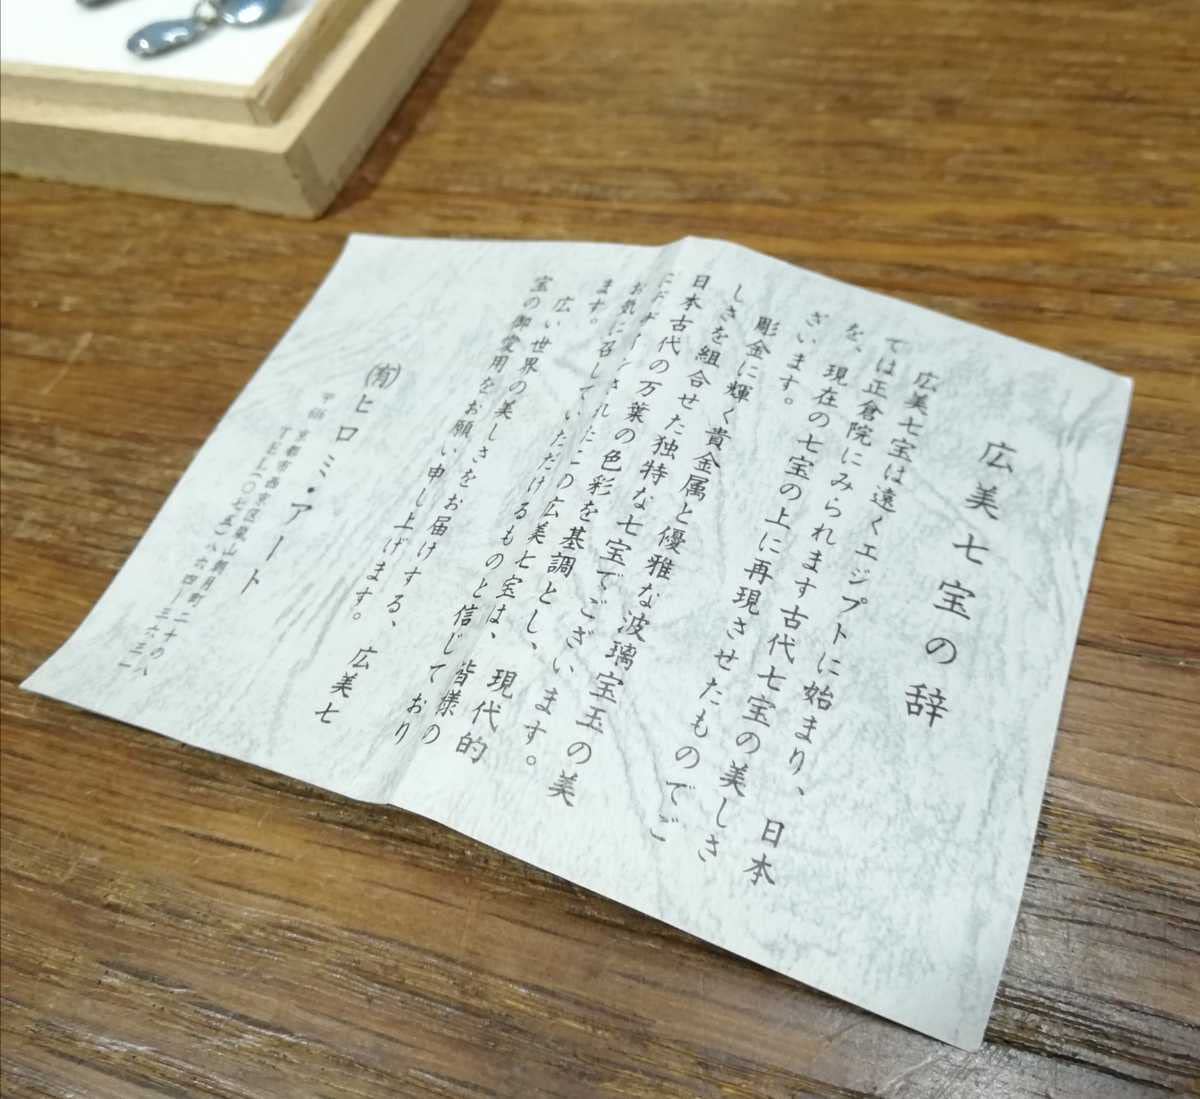 広美七宝の辞
広美七宝は遠くエジプトに始まり、日本
ては正倉院にみられます古代七宝の美しさ
を、現在の七宝の上に再現させたものでご
ざいます。
彫金に輝く貴金属と優雅な波璃宝玉の美
しさを組合せた独特な七宝でございます。
日本古代の万葉の色彩を基調とし、現代的
にデザインされたこの広美七宝は、皆様の
お気に召していただけるものと信じており
ます。
広い世界の美しさをお届けする、広美七
宝の御愛用をお願い申し上げます。
㈲ヒロミ・アート
京都市西京区嵐山朝月町二十の八
TEL(〇七五)八六四ー三六三一